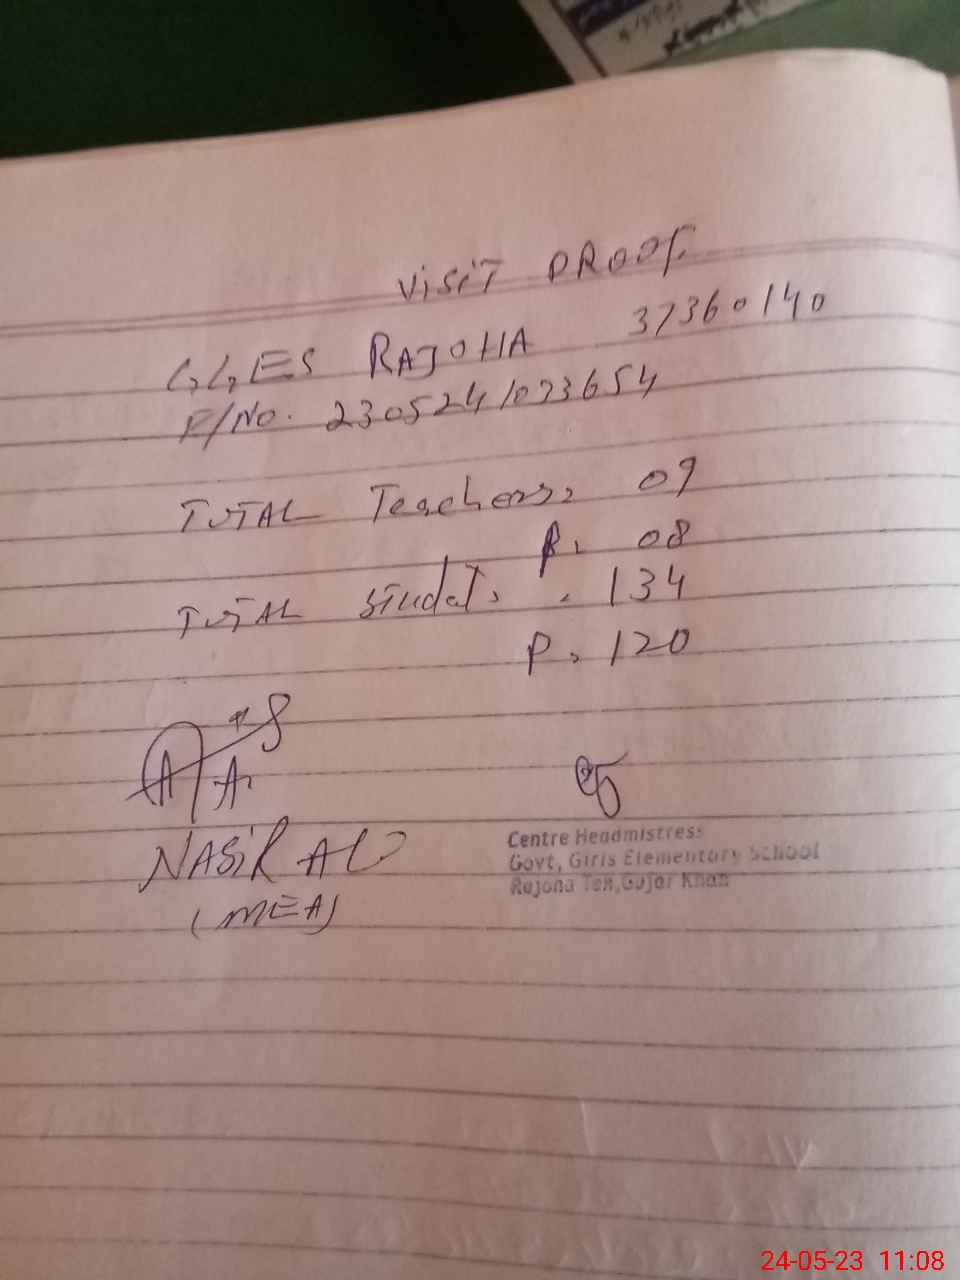 VISIT PROOF
G,G,ES RAJOHA 37360140
F/No. 2305241073654
TOTAL Teachers, 09
P, 08
TOTAL Student, , 134
P, 120
NASIR ALI
(MEA)
Centre Headmistress
Govt, Girls Elementary School
Rajoha Teh, Gujar Khan
24-05-23 11:08